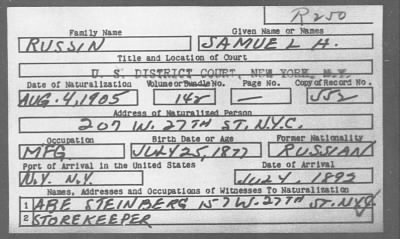 R250
Family Name Given Name or Names
RUSSIN SAMUEL H.
Title and Location of Court
U. S. DISTRICT COURT, NEW YORK, N.Y.
Date of Naturalization Volume or Bundle No. Page No. Copy of Record No.
AUG. 4, 1905 142 — 552
Address of Naturalized Person
207 W. 27TH ST. N.Y.C.
Occupation Birth Date or Age Former Nationality
MFG JULY 25, 1877 RUSSIAN
Port of Arrival in the United States Date of Arrival
N.Y. N.Y. JULY, 1892
Names, Addresses and Occupations of Witnesses To Naturalization
1 ABE STEINBERG 157 W. 27TH ST. NYC
2 STOREKEEPER